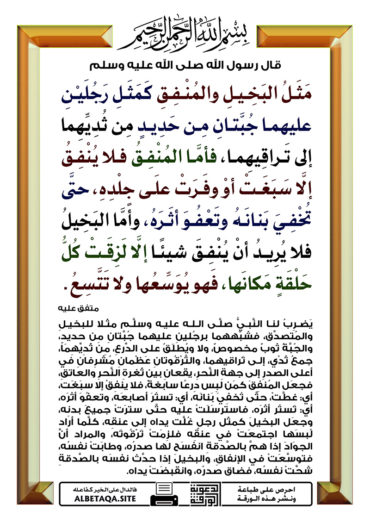 بسم الله الرحمن الرحيم
قال رسول الله صلى الله عليه وسلم
مَثَلُ البَخِيلِ والمُنْفِقِ كَمَثَلِ رَجُلَيْنِ
عليهما جُبَّتانِ مِن حَدِيدٍ مِن ثُدِيِّهِما
إلى تَراقِيهِما، فأمَّا المُنْفِقُ فلا يُنْفِقُ
إلَّا سَبَغَتْ أوْ وفَرَتْ علَى جِلْدِهِ، حتَّى
تُخْفِيَ بَنانَهُ وتَعْفُوَ أثَرَهُ، وأَمَّا البَخِيلُ
فلا يُرِيدُ أنْ يُنْفِقَ شيئًا إلَّا لَزِقَتْ كُلُّ
حَلْقَةٍ مَكانَها، فَهو يُوَسِّعُها ولا تَتَّسِعُ.
متفق عليه
يَضرِبُ لنا النَّبيُّ صلَّى اللـه عليه وسلَّم مثَلا للبخيلِ
والمُتصدِّقِ، فشبَّههما برجُلينِ عليهما جُبَّتانِ من حديدٍ،
والجُبَّةُ ثوبٌ مخصوصٌ، ولا ويُطلَقُ على الدِّرعِ، من ثُديِّهما،
جمعُ ثَدْيٍ، إلى تراقيهما، والتَّرقُوتانِ عَظْمانِ مُشرفانِ في
أعلى الصدرِ إلى جهةِ النَّحرِ، يقعان بين ثُغرةِ النَّحرِ والعاتقِ،
فجعل المُنفِقَ كمَن لَبِس درعًا سابغةً، فلا يُنفِقُ إلا سبَغَت،
أي: غطَّت، حتَّى تُخفيَ بَنانَه، أي: تستُرَ أصابعَه، وتعفُوَ أثَرَه،
أي: تستُرَ أثَرَه، فاسترسَلَت عليه حتَّى ستَرَت جميعَ بدنِه،
وجعل البخيلَ كمثَلِ رجلٍ غُلَّت يداه إلى عنقِه، كلَّما أراد
لُبسَها اجتمَعَت في عنقِه فلزِمَت تَرْقُوتَه، والمراد أنَّ
الجوادَ إذا همَّ بالصَّدقةِ انفسَح لها صدرُه، وطابَت نفسُه،
فتوسَّعَت في الإنفاقِ، والبخيلَ إذا حدَّث نفسَه بالصَّدقةِ
شحَّت نفسُه، فضاق صدرُه، وانقبَضَت يداه.
احرص على طباعة
ونشر هذه الورقة
بطاقة
الدعوية
فالدال على الخير كفاعله
ALBETAQA.SITE